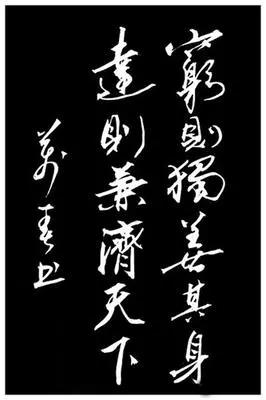 窮則獨善其身
達則兼濟天下
萬春书